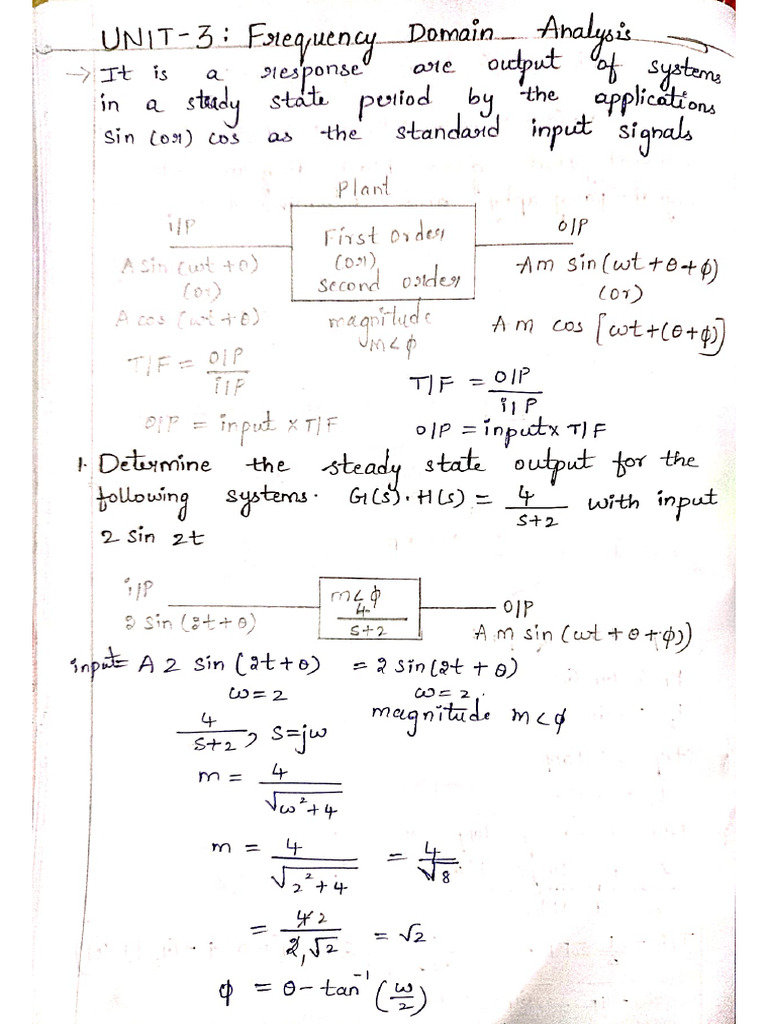 UNIT-3: Frequency Domain Analysis
→ It is a response are output of systems
in a steady state period by the applications
sin (or) cos as the standard input signals
Plant
i/P
O/P
First Order
(or)
second order
A sin (ωt + θ)
(or)
A cos (ωt + θ)
Am sin (ωt + θ + ϕ)
(or)
Am cos [ωt + (θ + ϕ)]
magnitude
M∠ϕ
T/F = O/P / i/P
T/F = O/P / i/P
O/P = input x T/F
O/P = input x T/F
1. Determine the steady state output for the
following systems. G(s).H(s) = 4 / s+2 with input
2 sin 2t
i/P
2 sin (2t + θ)
m∠ϕ
4 / s+2
O/P
Am sin (ωt + θ + ϕ))
input = A 2 sin (2t + θ) = 2 sin (2t + θ)
ω = 2 ω = 2.
4 / s+2, s = jω magnitude m∠ϕ
m = 4 / √ω² + 4
m = 4 / √2² + 4 = 4 / √8
= 4 2 / 2, √2 = √2
ϕ = θ - tan⁻¹ (ω/2)